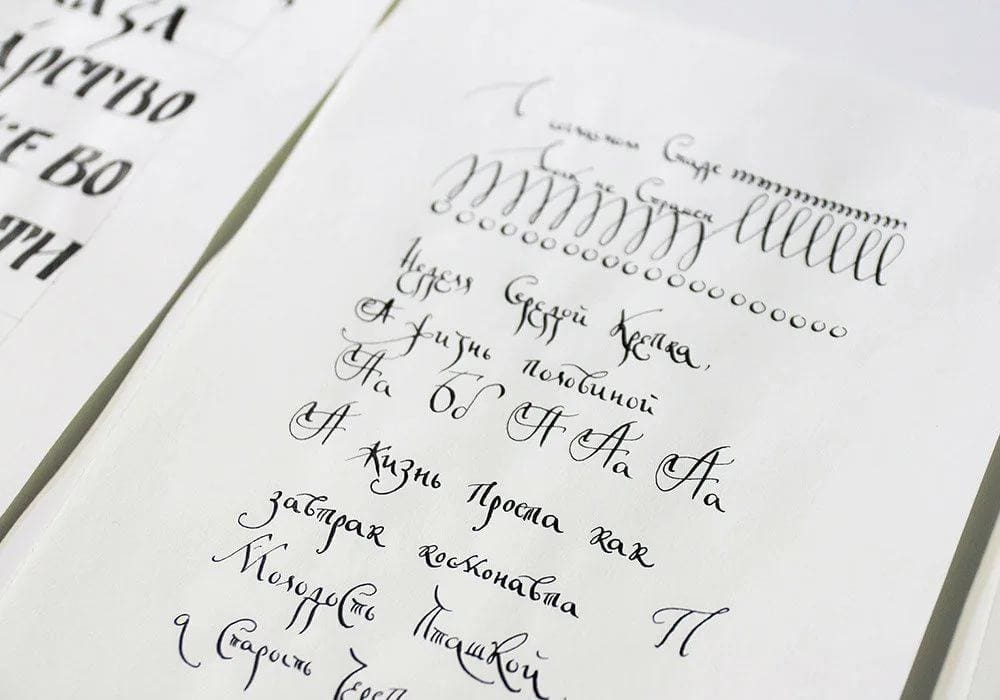 АЗА
АРСТВО
Е ВО
ТИ
Г
Стаде
Так не Страшен
Неделя Середой Крепка,
А жизнь половиной
Аа Бб А Аа Аа
А жизнь Проста как
завтрак космонавта П
Молодость Пташкой,
а Старость Череп